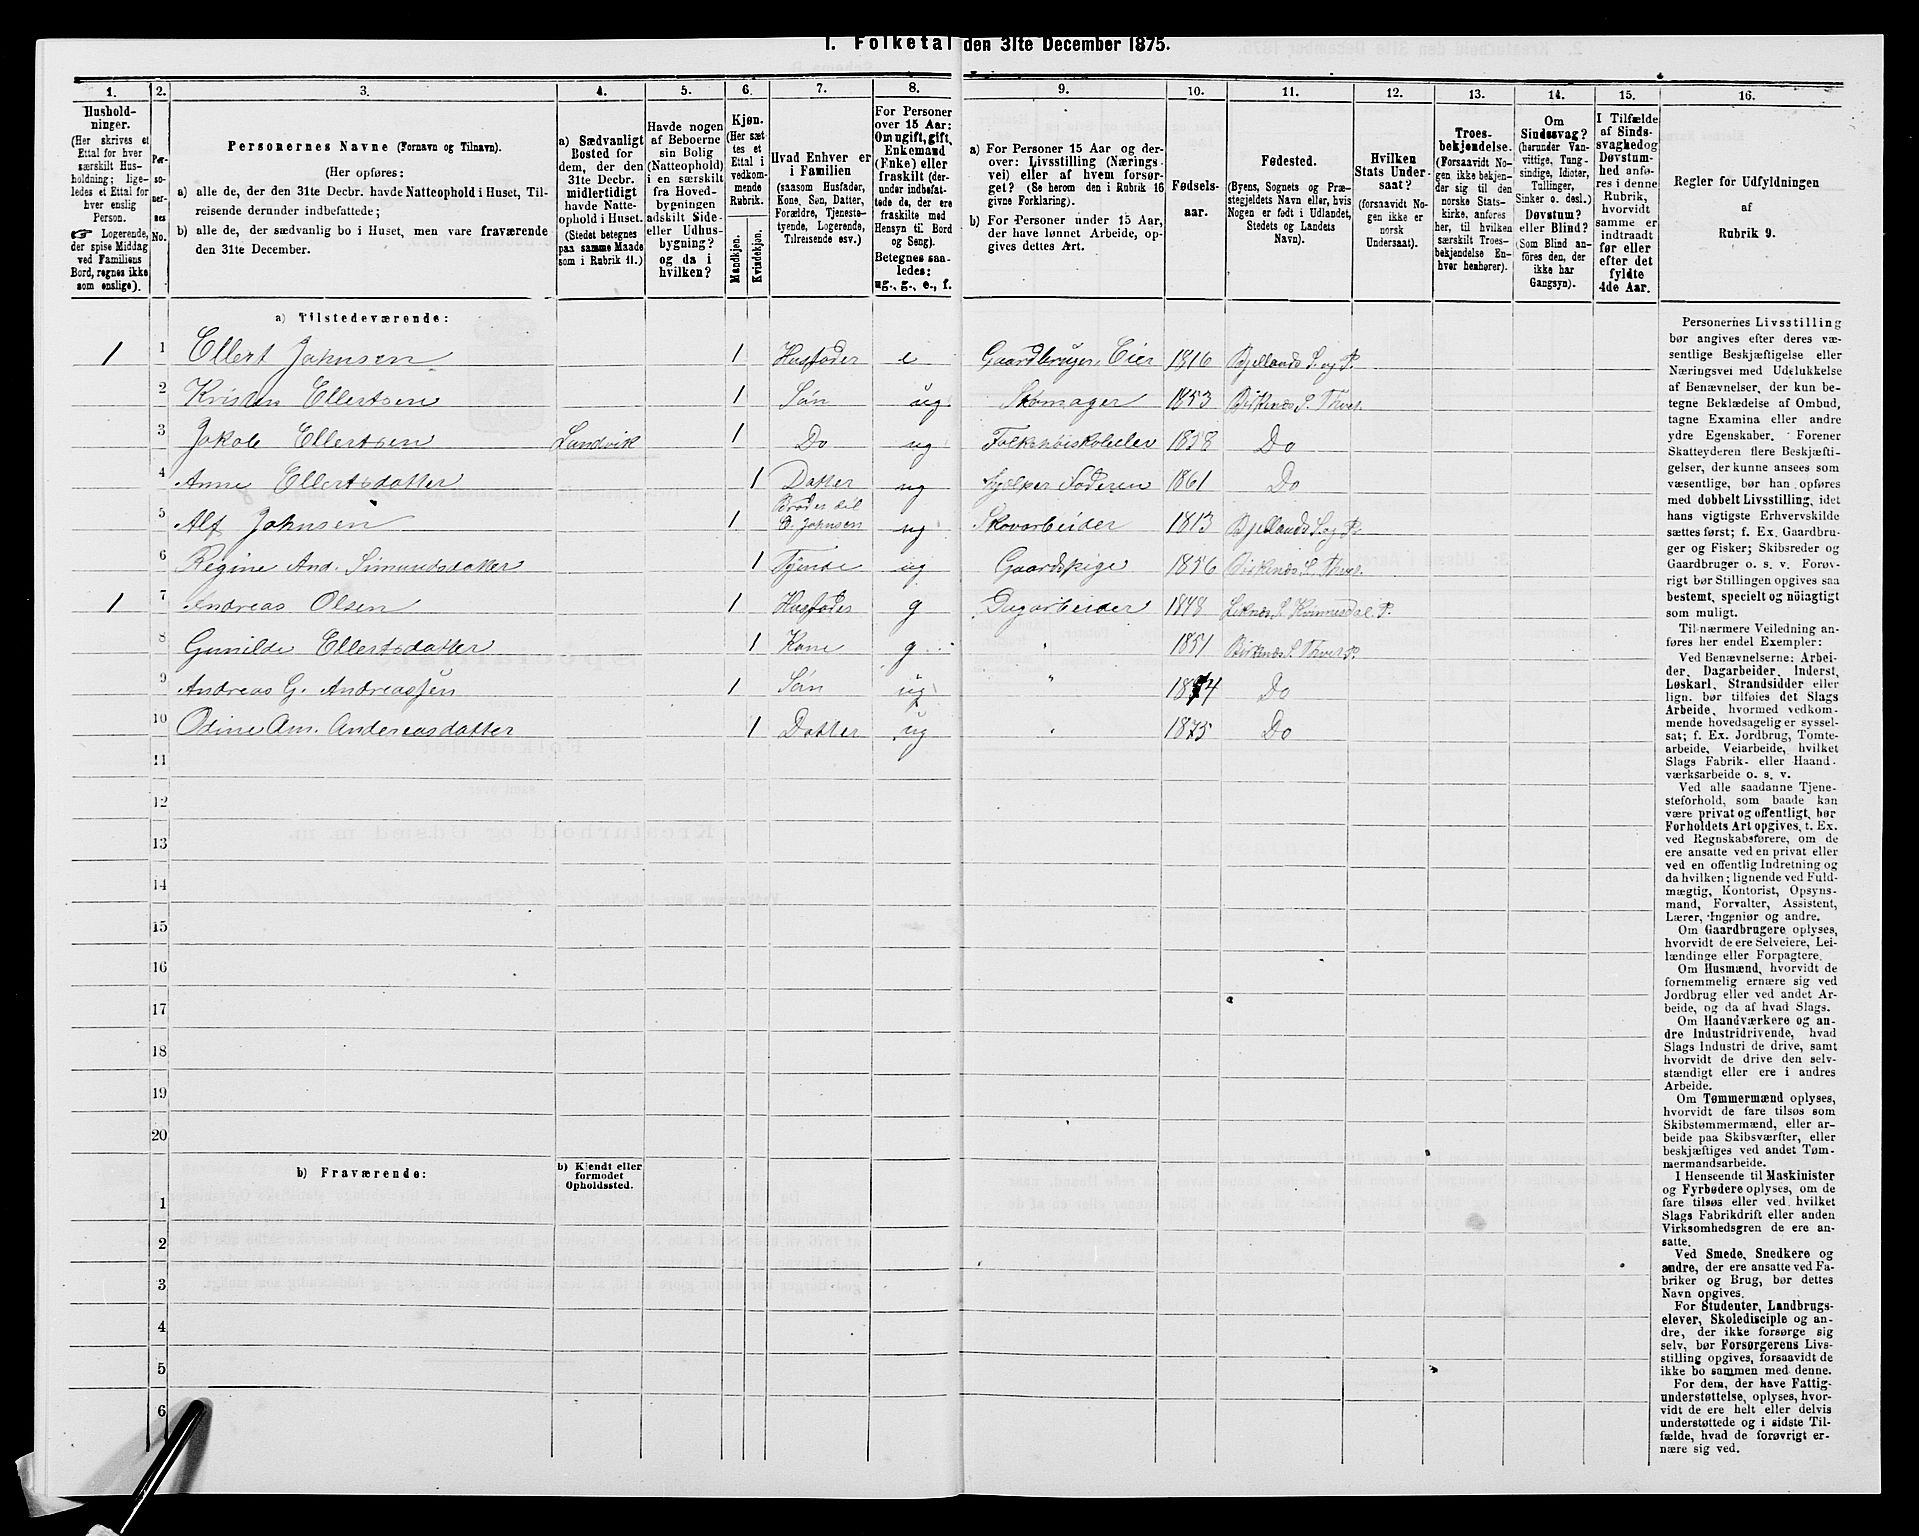 1. Folketal den 31te December 1875.
1. 2. 3. 4. 5. 6. 7. 8. 9. 10. 11. 12. 13. 14. 15. 16.
Hushold-
ninger.
(Her skrives et
Ettal for hver
særskilt Hus-
holdning; lige-
ledes et Ettal for
hver enslig
Person.
☞ Logerende,
der spise Middag
ved Familiens
Bord, regnes ikke
som enslige).
Per-
soner-
nes
No.
Personernes Navne (Fornavn og Tilnavn).
(Her opføres:
a) alle de, der den 31te Decbr. havde Natteophold i Huset, Til-
reisende derunder indbefattede;
b) alle de, der sædvanlig bo i Huset, men vare fraværende
den 31te December.
a) Sædvanligt
Bosted for
dem, der den
31te Decbr.
midlertidigt
havde Natte-
ophold i Huset.
(Stedet betegnes
paa samme Maade
som i Rubrik 11.)
Havde nogen
af Beboerne
sin Bolig
(Natteophold)
i en særskilt
fra Hoved-
bygningen
adskilt Side-
eller Udhus-
bygning?
og da i
hvilken?
Kjøn.
(Her sæt-
tes et
Ettal i
vedkom-
mende
Rubrik.
Mandkjøn.
Kvindekjøn.
Hvad Enhver er
i Familien
(saasom Husfader,
Kone, Søn, Datter,
Forældre, Tjeneste-
tyende, Logerende,
Tilreisende osv.)
For Personer
over 15 Aar:
Om ugift, gift,
Enkemand
(Enke) eller
fraskilt (der-
under indbefat-
tede de, der ere
fraskilte med
Hensyn til Bord
og Seng).
Betegnes saa-
ledes:
ug., g., e., f.
a) For Personer 15 Aar og der-
over: Livsstilling (Nærings-
vei) eller af hvem forsør-
get? (Se herom den i Rubrik 16
givne Forklaring).
b) For Personer under 15 Aar,
der have lønnet Arbeide, op-
gives dettes Art.
Fødsels-
aar.
Fødested.
(Byens, Sognets og Præ-
stegjeldets Navn eller, hvis
Nogen er født i Udlandet,
Stedets og Landets
Navn).
Hvilken
Stats Under-
saat?
(forsaavidt No-
gen ikke er
norsk
Undersaat).
Troes-
bekjendelse.
(Forsaavidt No-
gen ikke bekjen-
der sig til den
norske Stats-
kirke, anføres
her, til hvilken
særskilt Troes-
bekjendelse En-
hver henhører).
Om
Sindssvag?
(herunder Van-
vittige, Tung-
sindige, Idioter,
Tullinger,
Sinker o. desl.)
Døvstum?
eller Blind?
(Som Blind an-
føres den, der
ikke har
Gangsyn).
I Tilfælde
af Sinds-
svaghed og
Døvstum-
hed anfø-
res i denne
Rubrik,
hvorvidt
samme er
indtraadt
før eller
efter det
fyldte
4de Aar.
Regler for Udfyldningen
af
Rubrik 9.
a) Tilstedeværende:
1 1 Ellert Johnsen 1 Husfader e Gaardbruger, Eier 1816 Bjellands S. og P.
2 Kristen Ellertsen 1 Søn ug. Skomager 1853 Birkenæs S. Thvet.
3 Jakob Ellertsen Landvik 1 Do ug 1858 Do
4 Anne Ellertsdatter 1 Datter ug Hjælper Faderen 1861 Do
5 Alf Johnsen 1 Broder til E. Johnsen ug Skovarbeider 1813 Bjellands S. og P.
6 Regine And. Simundsdatter 1 Tjende ug Gaardspige 1856 Birkenæs S. Thvet.
1 7 Andreas Olsen 1 Husfader g Dagarbeider 1848 S. Kvinnesdal P.
8 Gunilde Ellertsdatter 1 Kone g " 1851 Birkenæs S. Thvet P.
9 Andreas G. Andreassen 1 Søn ug " 1874 Do
10 Odine Am. Andreasdatter 1 Datter ug " 1875 Do
11
12
13
14
15
16
17
18
19
20
b) Fraværende:
b) Kjendt eller
formodet
Opholdssted.
1
2
3
4
5
6
Personernes Livsstilling
bør angives efter deres væ-
sentlige Beskjæftigelse eller
Næringsvei med Udelukkelse
af Benævnelser, der kun be-
tegne Beklædelse af Ombud,
tagne Examina eller andre
ydre Egenskaber. Forener
Skatteyderen flere Beskjæfti-
gelser, der kunne ansees som
væsentlige, bør han opføres
med dobbelt Livsstilling, idet
hans vigtigste Erhvervskilde
sættes først; f. Ex. Gaardbru-
ger og Fisker; Skibsreder og
Gaardbruger o. s. v. Forøv-
rigt bør Stillingen opgives saa
bestemt, specielt og nøiagtigt
som muligt.
Til nærmere Veiledning an-
føres her endel Exempler:
Ved Benævnelserne: Arbei-
der, Dagarbeider, Inderst,
Løskarl, Strandsidder eller
lign. bør tilføies det Slags
Arbeide, hvormed vedkom-
mende hovedsagelig er syssel-
sat; f. Ex. Jordbrug, Tomte-
arbeide, Veiarbeide, hvilket
Slags Fabrik- eller Haand-
værksarbeide o. s. v.
Ved alle saadanne Tjene-
steforhold, som baade kan
være privat og offentligt, bør
Forholdets Art opgives, t. Ex.
ved Regnskabsførere, om de
ere ansatte ved en privat eller
ved en offentlig Indretning og
da hvilken; lignende ved Fuld-
mægtig, Kontorist, Opsyns-
mand, Forvalter, Assistent,
Lærer, Ingeniør og andre.
Om Gaardbrugere oplyses,
hvorvidt de ere Selveiere, Lei-
lændinge eller Forpagtere.
Om Husmænd, hvorvidt de
fornemmelig ernære sig ved
Jordbrug eller ved andet Ar-
beide, og da af hvad Slags.
Om Haandværkere og an-
dre Industridrivende, hvad
Slags Industri de drive, samt
hvorvidt de drive den selv-
stændigt eller ere i andres
Arbeide.
Om Tømmermænd oplyses,
hvorvidt de fare tilsøs som
Skibstømmermænd, eller ar-
beide paa Skibsværfter, eller
beskjæftiges ved andet Tøm-
mermandsarbeide.
I Henseende til Maskinister
og Fyrbødere oplyses, om de
fare tilsøs eller ved hvilket
Slags Fabrikdrift eller anden
Virksomhedsgren de ere an-
satte.
Ved Smede, Snedkere og
andre, der ere ansatte ved Fa-
briker og Brug, bør dettes
Navn opgives.
For Studenter, Landbrugs-
elever, Skoledisciple og an-
dre, der ikke forsørge sig
selv, bør Forsørgerens Livs-
stilling opgives, forsaavidt de
ikke bo sammen med denne.
For dem, der have Fattig-
understøttelse, oplyses, hvor-
vidt de ere helt eller delvis
understøttede og i sidste Til-
fælde, hvad de forøvrigt er-
nære sig ved.